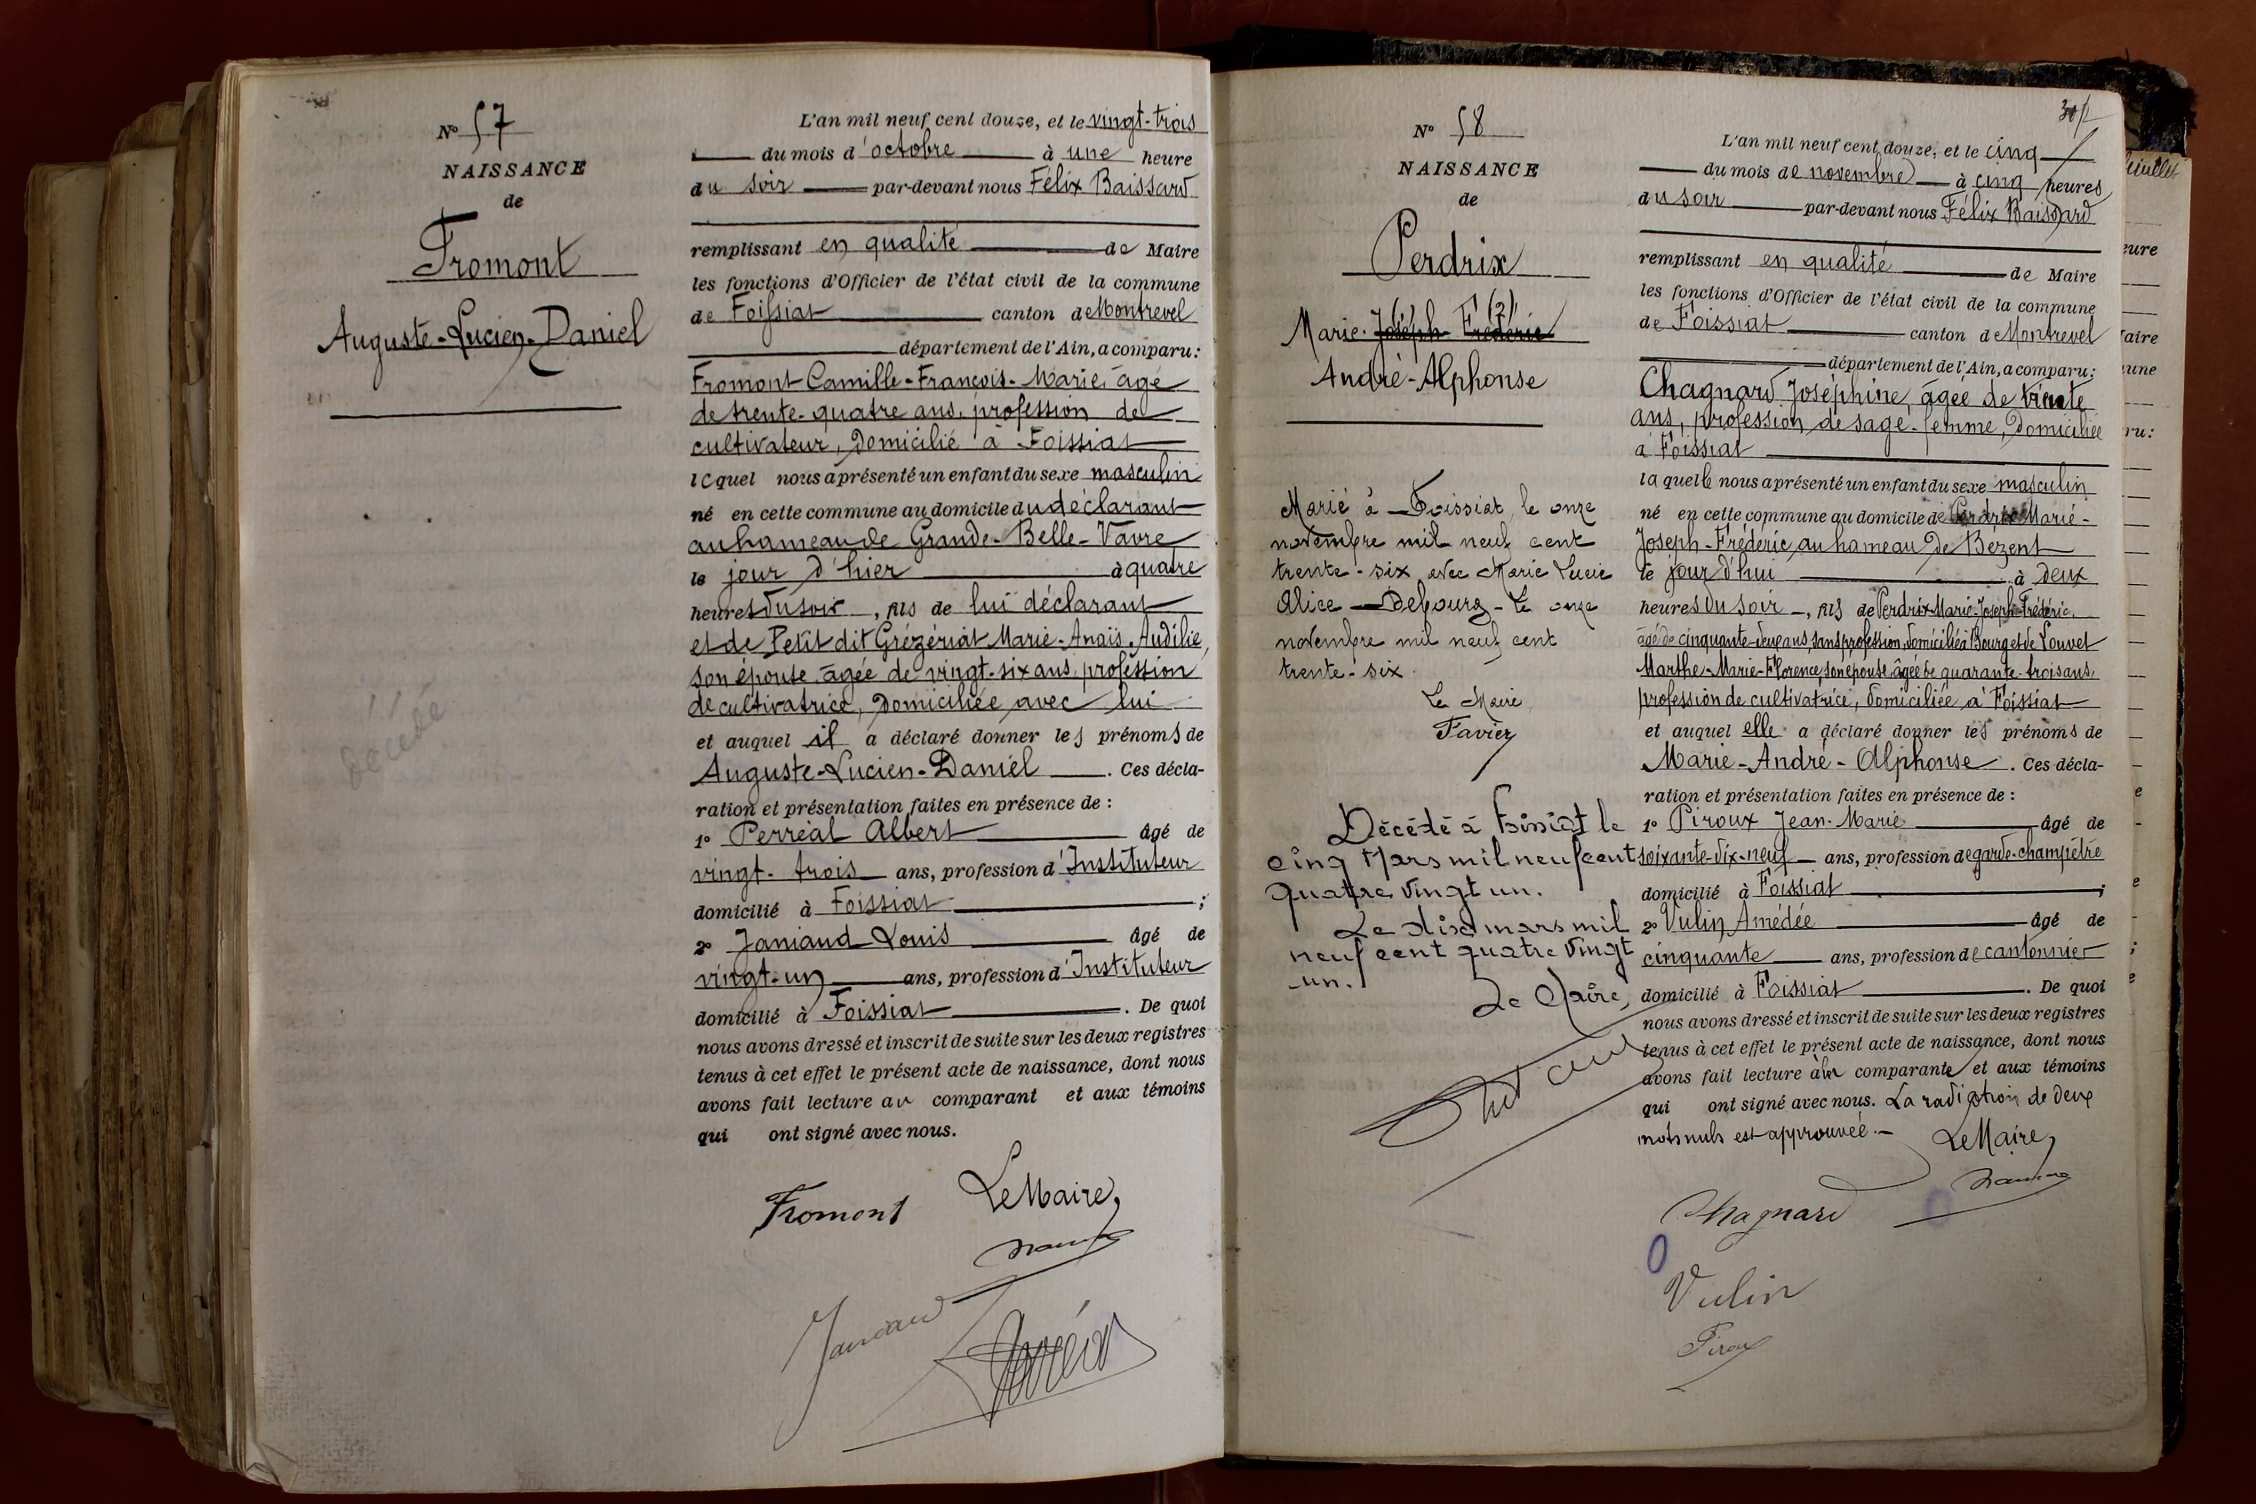 N° 57
NAISSANCE
de
Fromont
Auguste-Lucien-Daniel
décédé
L'an mil neuf cent douze, et le vingt-trois
du mois d'octobre à une heure
du soir par-devant nous Félix Baissard
remplissant en qualité de Maire
les fonctions d'Officier de l'état civil de la commune
de Foissiat canton de Montrevel
département de l'Ain, a comparu:
Fromont Camille-François-Marie, âgé
de trente-quatre ans, profession de
cultivateur, domicilié à Foissiat
lequel nous a présenté un enfant du sexe masculin
né en cette commune au domicile du déclarant
au hameau de Grande-Belle-Vavre
le jour d'hier à quatre
heures du soir, fils de lui déclarant
et de Petit dit Grézériat Marie-Anaïs-Audilie,
son épouse âgée de vingt-six ans profession
de cultivatrice, domiciliée avec lui
et auquel il a déclaré donner les prénoms de
Auguste-Lucien-Daniel. Ces décla-
ration et présentation faites en présence de :
1° Perréal Albert âgé de
vingt-trois ans, profession d'Instituteur
domicilié à Foissiat ;
2° Janiaud Louis âgé de
vingt-un ans, profession d'Instituteur
domicilié à Foissiat. De quoi
nous avons dressé et inscrit de suite sur les deux registres
tenus à cet effet le présent acte de naissance, dont nous
avons fait lecture au comparant et aux témoins
qui ont signé avec nous.
Fromont Le Maire,
Janiaud
Perréal
N° 58
NAISSANCE
de
Perdrix
(2)
Marie-Joseph-Frédéric
André-Alphonse
Marié à Foissiat, le onze
novembre mil neuf cent
trente-six avec Marie Lucie
Alice Debourg - Le onze
novembre mil neuf cent
trente-six.
Le Maire,
Favier
Décédé à Foissiat le
cinq Mars mil neuf cent
quatre vingt un.
Le dix mars mil
neuf cent quatre vingt
un.
Le Maire,
L'an mil neuf cent douze, et le cinq
du mois de novembre à cinq heures
du soir par-devant nous Félix Baissard
remplissant en qualité de Maire
les fonctions d'Officier de l'état civil de la commune
de Foissiat canton de Montrevel
département de l'Ain, a comparu:
Chagnard Joséphine, âgée de trente
ans, profession de sage-femme, domiciliée
à Foissiat
laquelle nous a présenté un enfant du sexe masculin
né en cette commune au domicile de Perdrix Marie-
Joseph-Frédéric au hameau de Bezent
le jour d'hui à deux
heures du soir, fils de Perdrix Marie-Joseph-Frédéric,
âgé de cinquante-deux ans, sans profession domicilié à Bourg et de Louvet
Marthe-Marie-Florence, son épouse, âgée de quarante-trois ans,
profession de cultivatrice, domiciliée à Foissiat
et auquel elle a déclaré donner les prénoms de
Marie-André-Alphonse. Ces décla-
ration et présentation faites en présence de :
1° Piroux Jean-Marie âgé de
soixante-dix-neuf ans, profession de garde-champêtre
domicilié à Foissiat ;
2° Vulin Amédée âgé de
cinquante ans, profession de cantonnier
domicilié à Foissiat. De quoi
nous avons dressé et inscrit de suite sur les deux registres
tenus à cet effet le présent acte de naissance, dont nous
avons fait lecture à la comparante et aux témoins
qui ont signé avec nous. La radiation de deux
mots nuls est approuvée.
Le Maire,
Chagnard
Vulin
Piroux